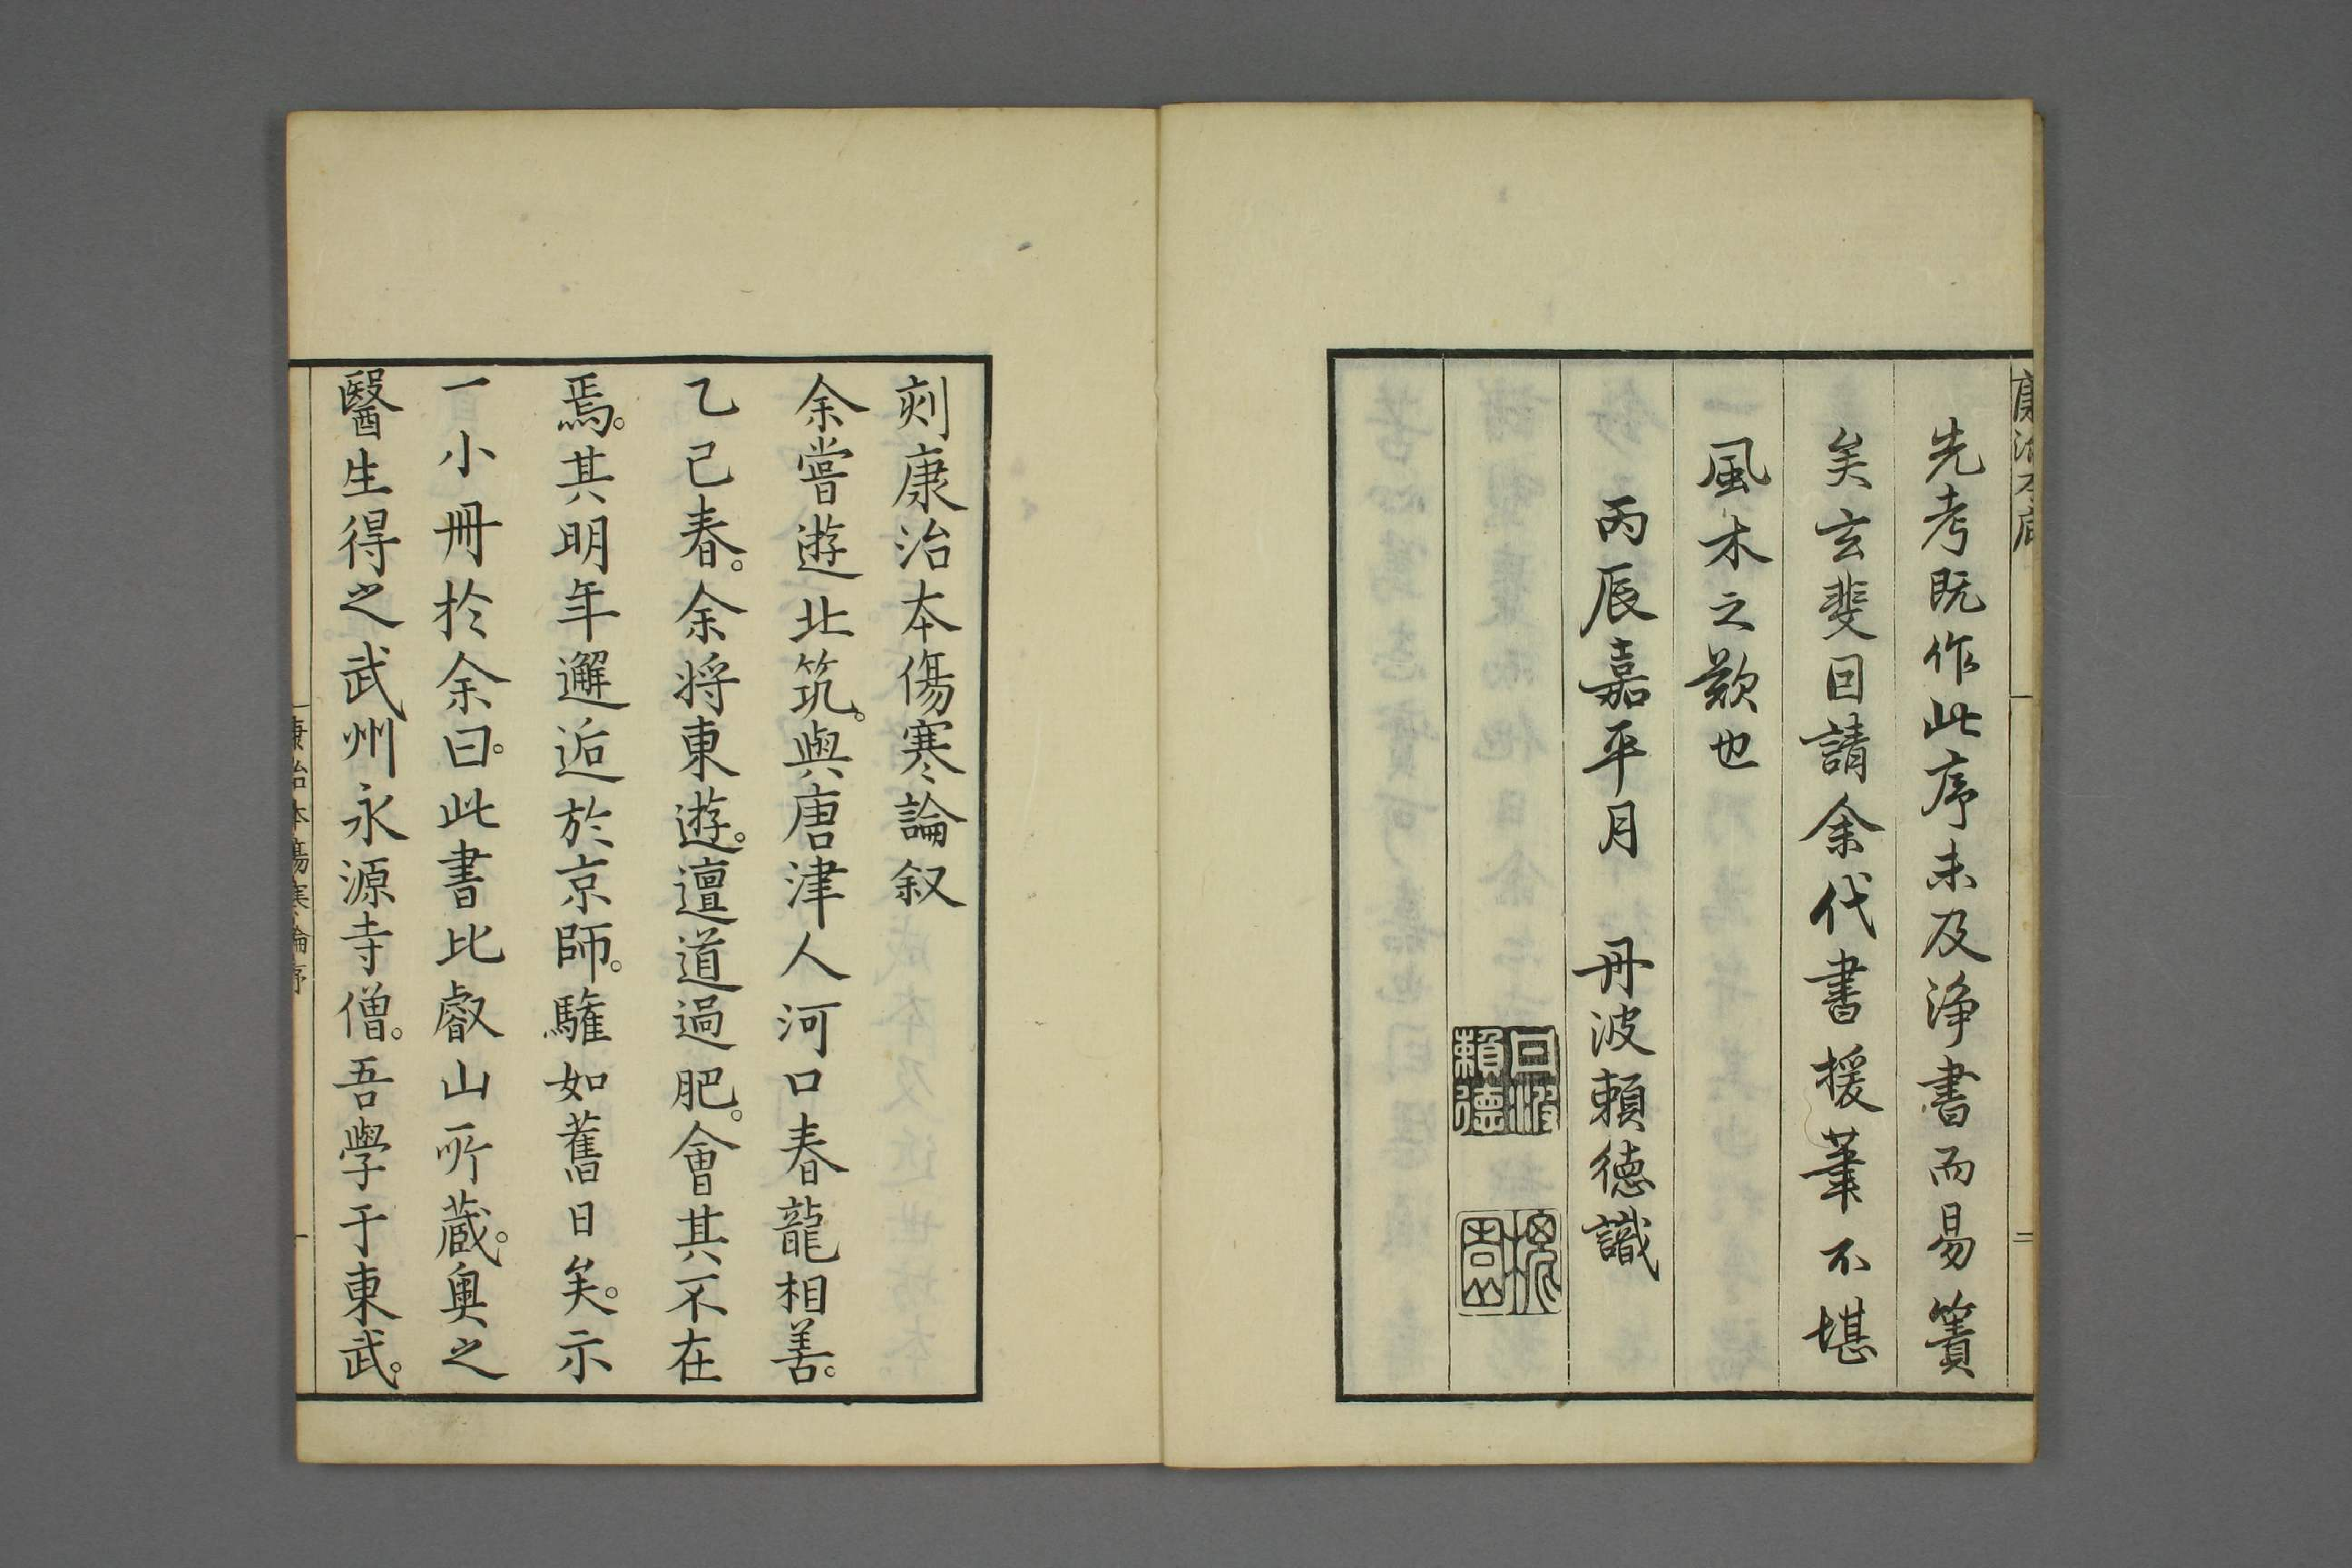 康治本序
二
先考既作此序未及浄書而易簀
矣玄斐因請余代書援筆不堪
風木之歎也
丙辰嘉平月　丹波頼徳識
丹波頼徳
刻康治本傷寒論叙
余嘗遊北筑。與唐津人河口春龍相善。
乙巳春。余将東遊。邅道過肥。會其不在
焉。其明年邂逅於京師。驩如舊日矣。示
一小冊於余曰。此書比叡山所蔵。奥之
醫生得之武州永源寺僧。吾學于東武。
康治本傷寒論序
一